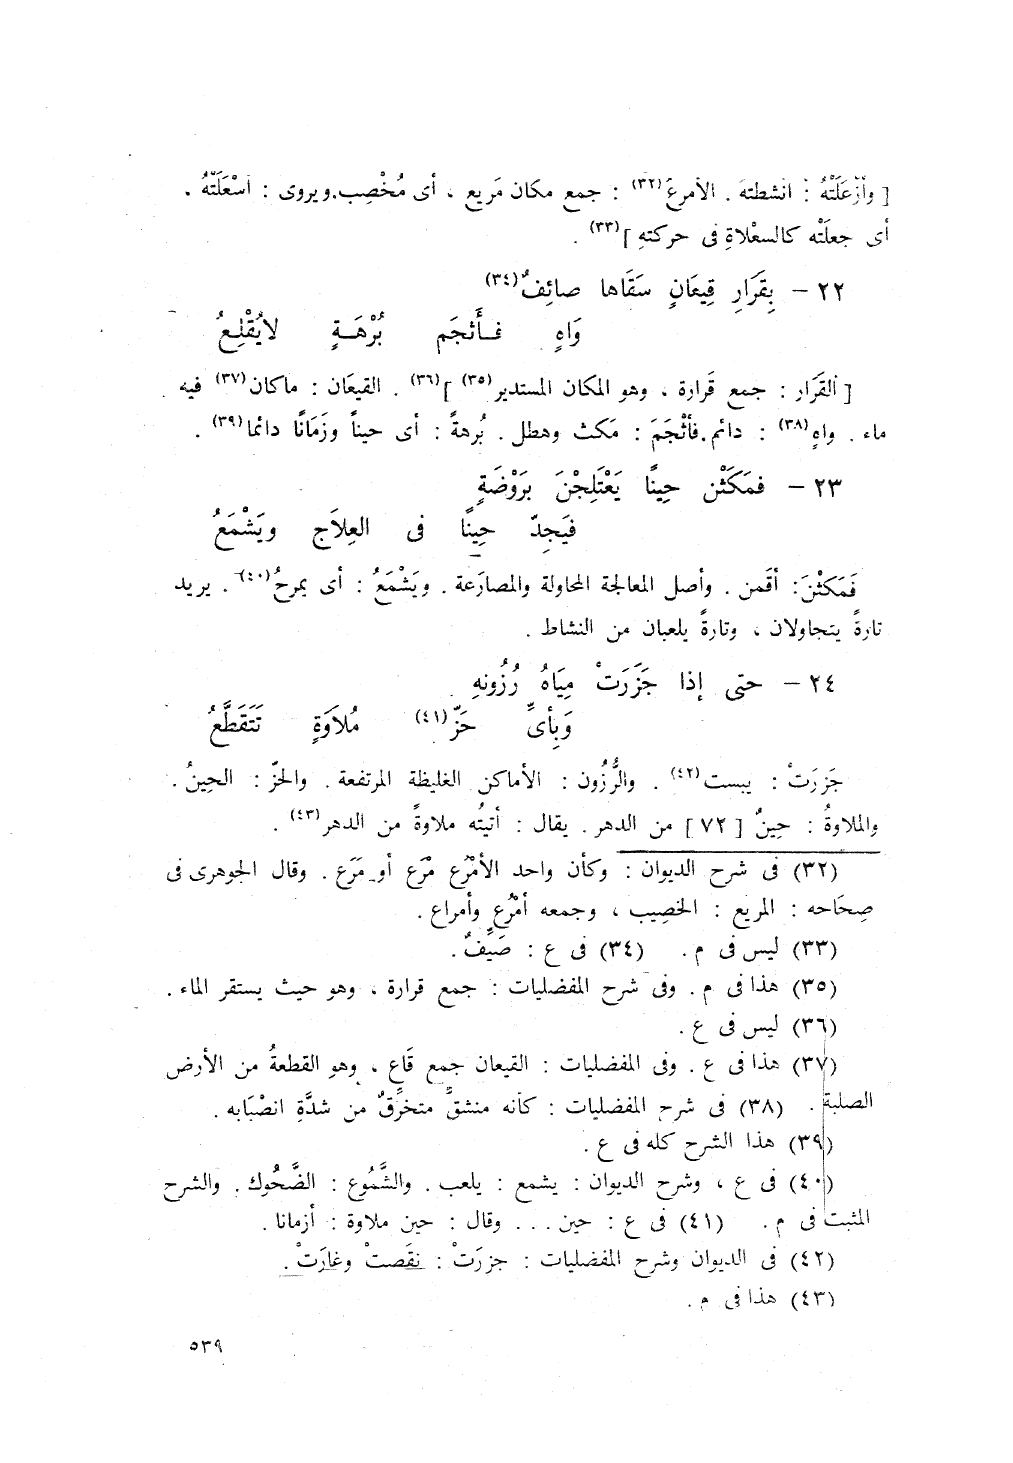 [ وأزْعَلَتْهُ : انشطته . الأمرعُ(٣٢) : جمع مكان مَريع ، أى مُخْصِب.ويروى : أسْعَلَتْهُ .
أى جعلَتْه كالسعْلاةِ فى حركتهِ ](٣٣) .
٢٢ – بِقَرَارِ قِيعَانٍ سَقَاها صائِفٌ(٣٤)
وَاهٍ فــأَثجَم بُرْهَــةٍ لايُقْلِعُ
[ القَرَار : جمع قَرارة ، وهو المكان المستدير(٣٥) ](٣٦) . القيعَان : ماكان(٣٧) فيه
ماء . واهٍ(٣٨) : دائم.فأثْجَمَ : مَكث وهطل . بُرهةً : أى حيناً وزَمَانًا دائما(٣٩) .
٢٣ – فمَكَثْن حِينًا يَعْتَلِجْنَ بَرْوضَةٍ
فيَجِدّ حِينًا فى العِلاَجِ ويَشْمَعُ
فَمَكثْنَ: أقَمن . وأصل المعالجة المحاولة والمصارَعة . ويَشْمَعُ : أى يمرحُ(٤٠) . يريد
تارةً يتجاولان ، وتارةً يلعبان من النشاط .
٢٤ – حتى إذا جَزَرَتْ مِيَاهُ رُزُونهِ
وَبِأىِّ حَزّ(٤١) مُلاَوَةٍ تَتَقَطَّعُ
جَزرَتْ : يبست(٤٢) . والرُّزُون : الأماكن الغليظة المرتفعة . والحَزّ : الحِينُ .
والملاوةُ : حِينٌ [ ٧٢ ] من الدهر . يقال : أتيتُه ملاوةً من الدهر(٤٣) .
(٣٢) فى شرح الديوان : وكأن واحد الأمْرُع مْرَع أو مَرَع . وقال الجوهرى فى
صِحَاحه : المريع : الخصِيب ، وجمعه أمْرُع وأمراع .
(٣٣) ليس فى م . (٣٤) فى ع : صَيِّفٌ .
(٣٥) هذا فى م . وفى شرح المفضليات : جمع قرارة ، وهو حيث يستقر الماء .
(٣٦) ليس فى ع .
(٣٧) هذا فى ع . وفى المفضليات : القيعان جمع قَاع ، وهو القطعةُ من الأرض
الصلبة . (٣٨) فى شرح المفضليات : كأنه منشقٌّ متخرِّقٌ من شدَّةِ انصْبَابه .
(٣٩) هذا الشرح كله فى ع .
(٤٠) فى ع ، وشرح الديوان : يشمع : يلعب . والشَّمُوع : الضَّحُوك . والشرح
المثبت فى م . (٤١) فى ع : حين ... وقال : حين ملاوة : أزمانا .
(٤٢) فى الديوان وشرح المفضليات : جزرَتْ : نقَصتْ وغارَتْ .
(٤٣) هذا فى م .
٥٣٩